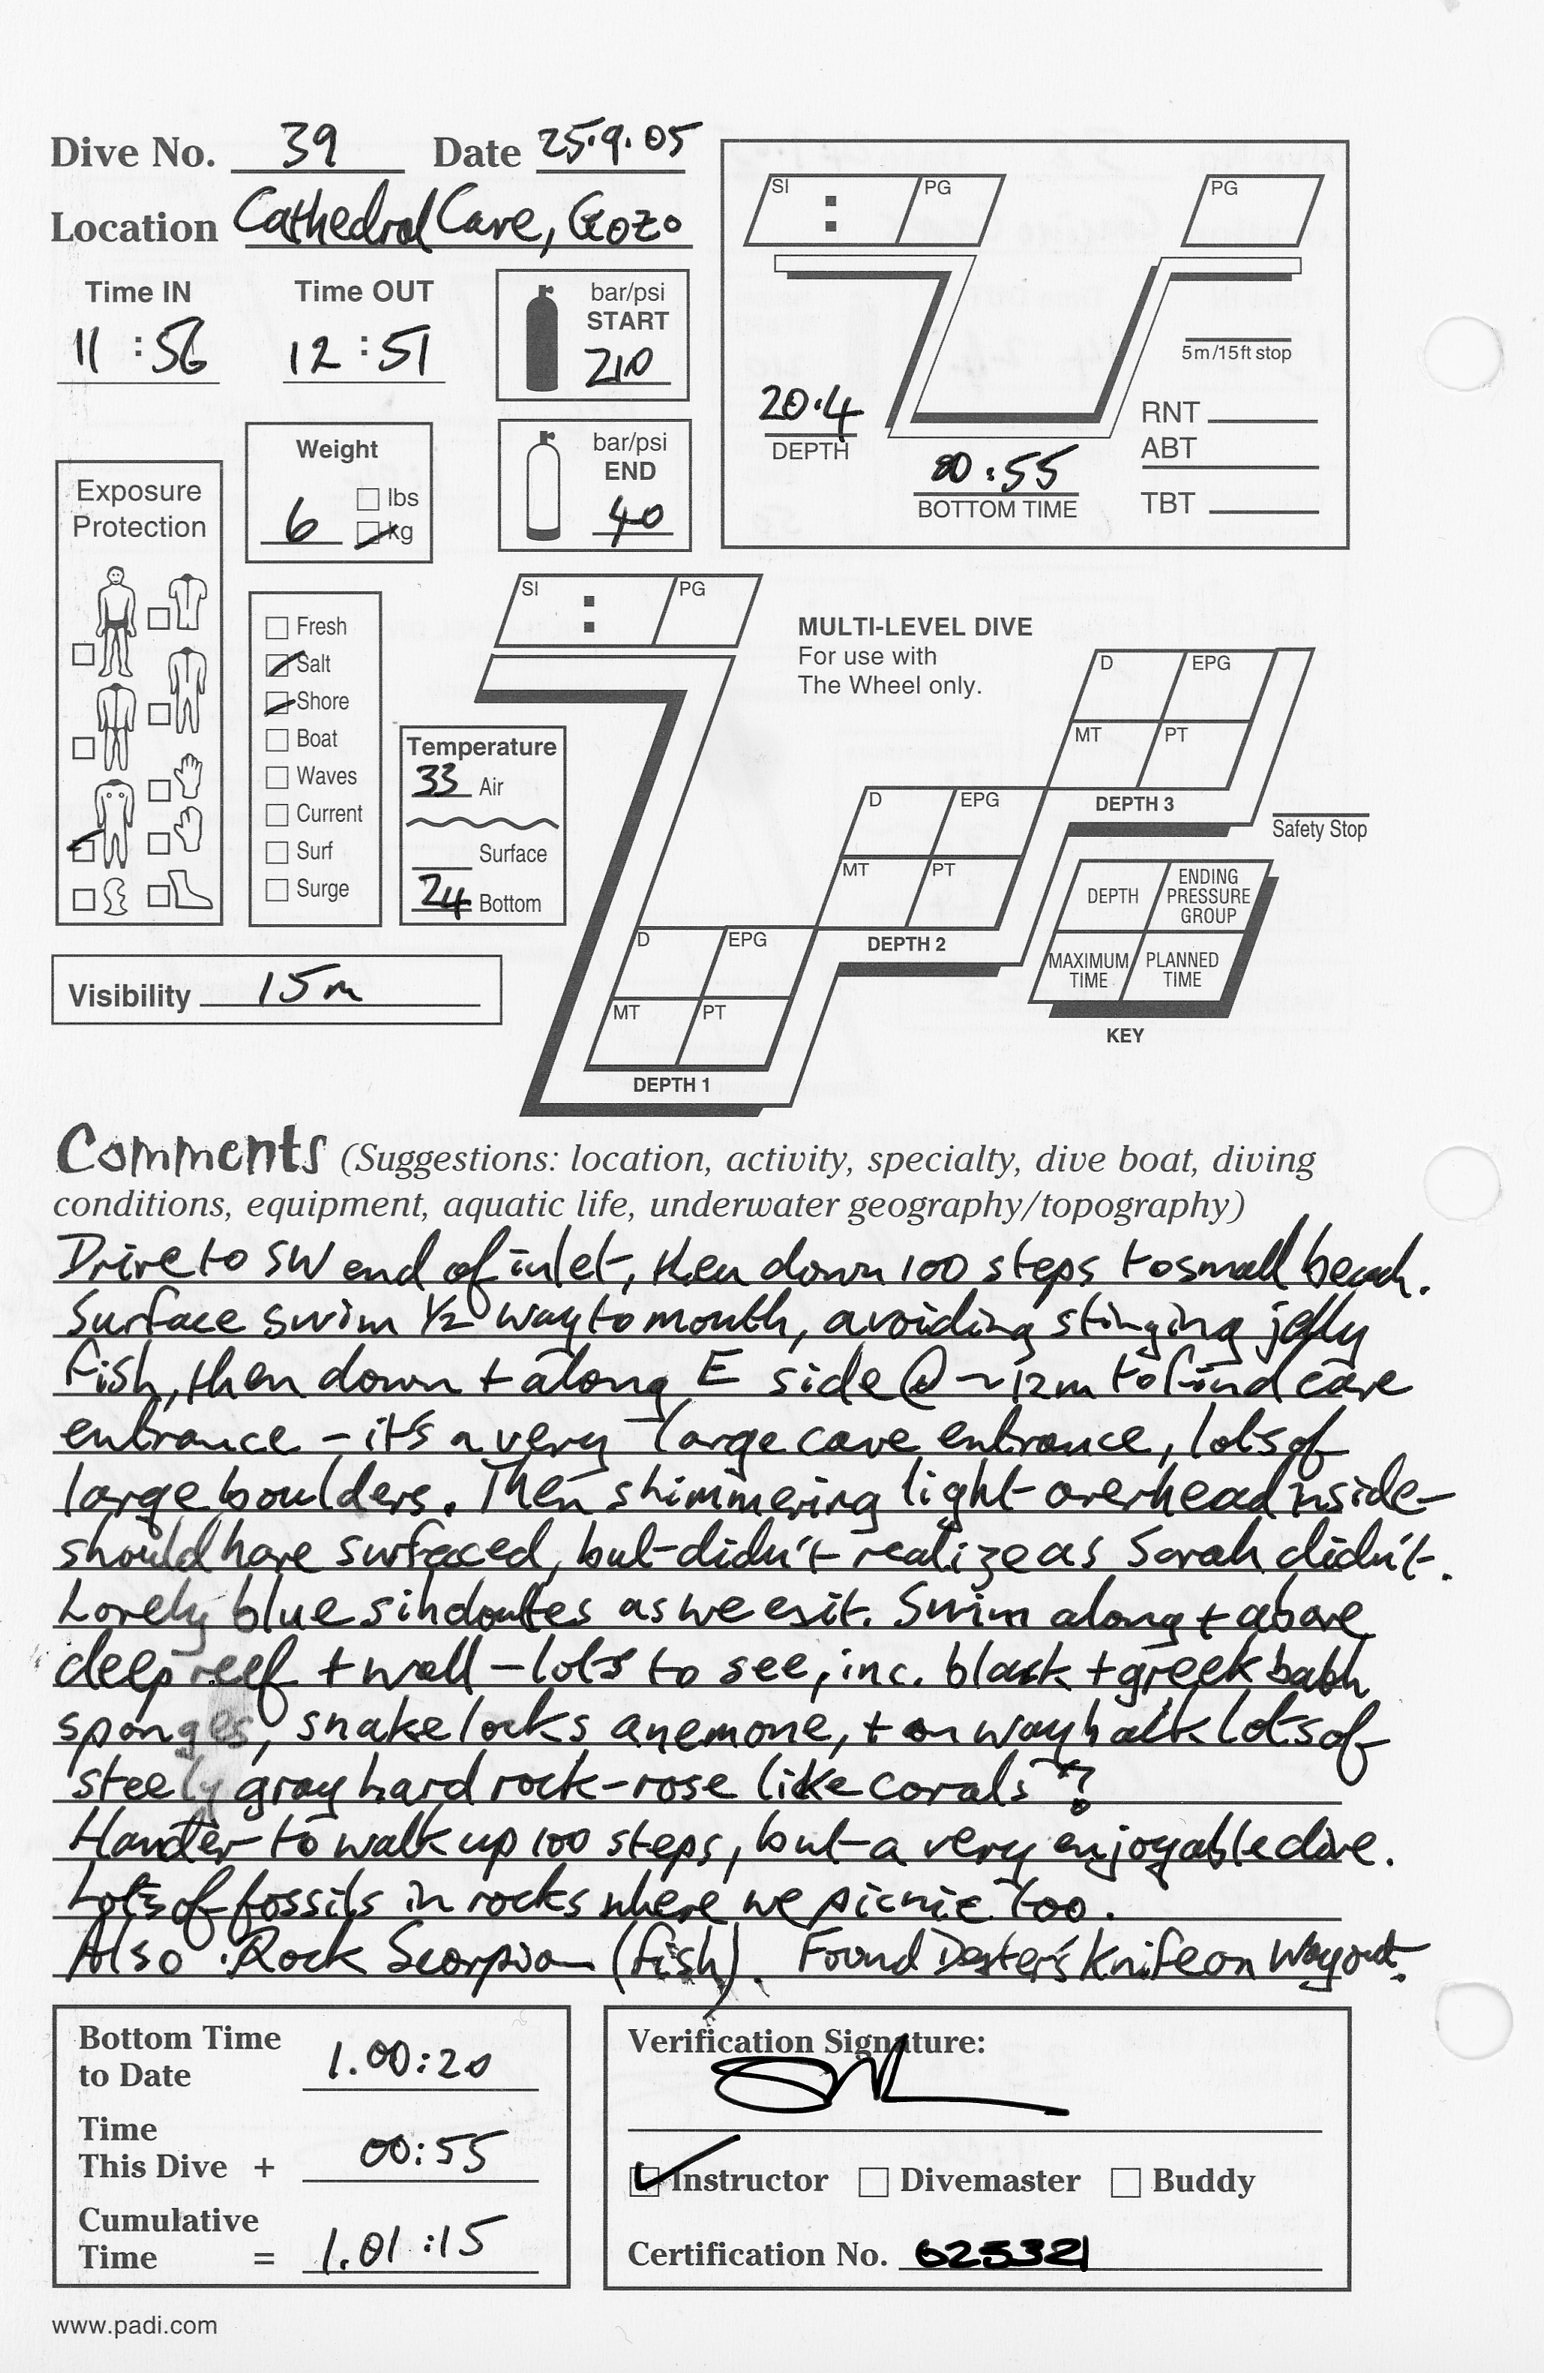 Dive No. 39 Date 25.9.05
Location Cathedral Cave, Gozo
Time IN Time OUT
11:56 12:51
bar/psi
START
210
bar/psi
END
40
Weight
6 lbs
kg
Exposure
Protection
Fresh
Salt
Shore
Boat
Waves
Current
Surf
Surge
Temperature
33 Air
Surface
24 Bottom
Visibility 15m
SI : PG
PG
5m/15ft stop
20.4
DEPTH
00:55
BOTTOM TIME
RNT
ABT
TBT
SI : PG
MULTI-LEVEL DIVE
For use with
The Wheel only.
D EPG
MT PT
DEPTH 3
D EPG
MT PT
DEPTH 2
D EPG
MT PT
DEPTH 1
Safety Stop
DEPTH ENDING PRESSURE GROUP
MAXIMUM TIME PLANNED TIME
KEY
Comments (Suggestions: location, activity, specialty, dive boat, diving
conditions, equipment, aquatic life, underwater geography/topography)
Drive to SW end of inlet, then down 100 steps to small beach.
Surface swim 1/2 way to mouth, avoiding stinging jelly
fish, then down + along E side @ ~12m to find cave
entrance – it's a very large cave entrance, lots of
large boulders. Then shimmering light overhead inside –
should have surfaced, but didn't realize as Sarah didn't.
Lovely blue as we exit. Swim along + above
deep reef + wall – lots to see, inc. black + greek bath
sponges, snakelocks anemone, + on way back lots of
steely gray hard rock-rose like corals?
Harder to walk up 100 steps, but a very enjoyable dive.
Lots of fossils in rocks where we picnic too.
Also: Rock Scorpion (fish). Found Dexter's knife on way out.
Bottom Time
to Date 1.00:20
Time
This Dive + 00:55
Cumulative
Time = 1.01:15
Verification Signature:
Instructor Divemaster Buddy
Certification No. 625321
www.padi.com